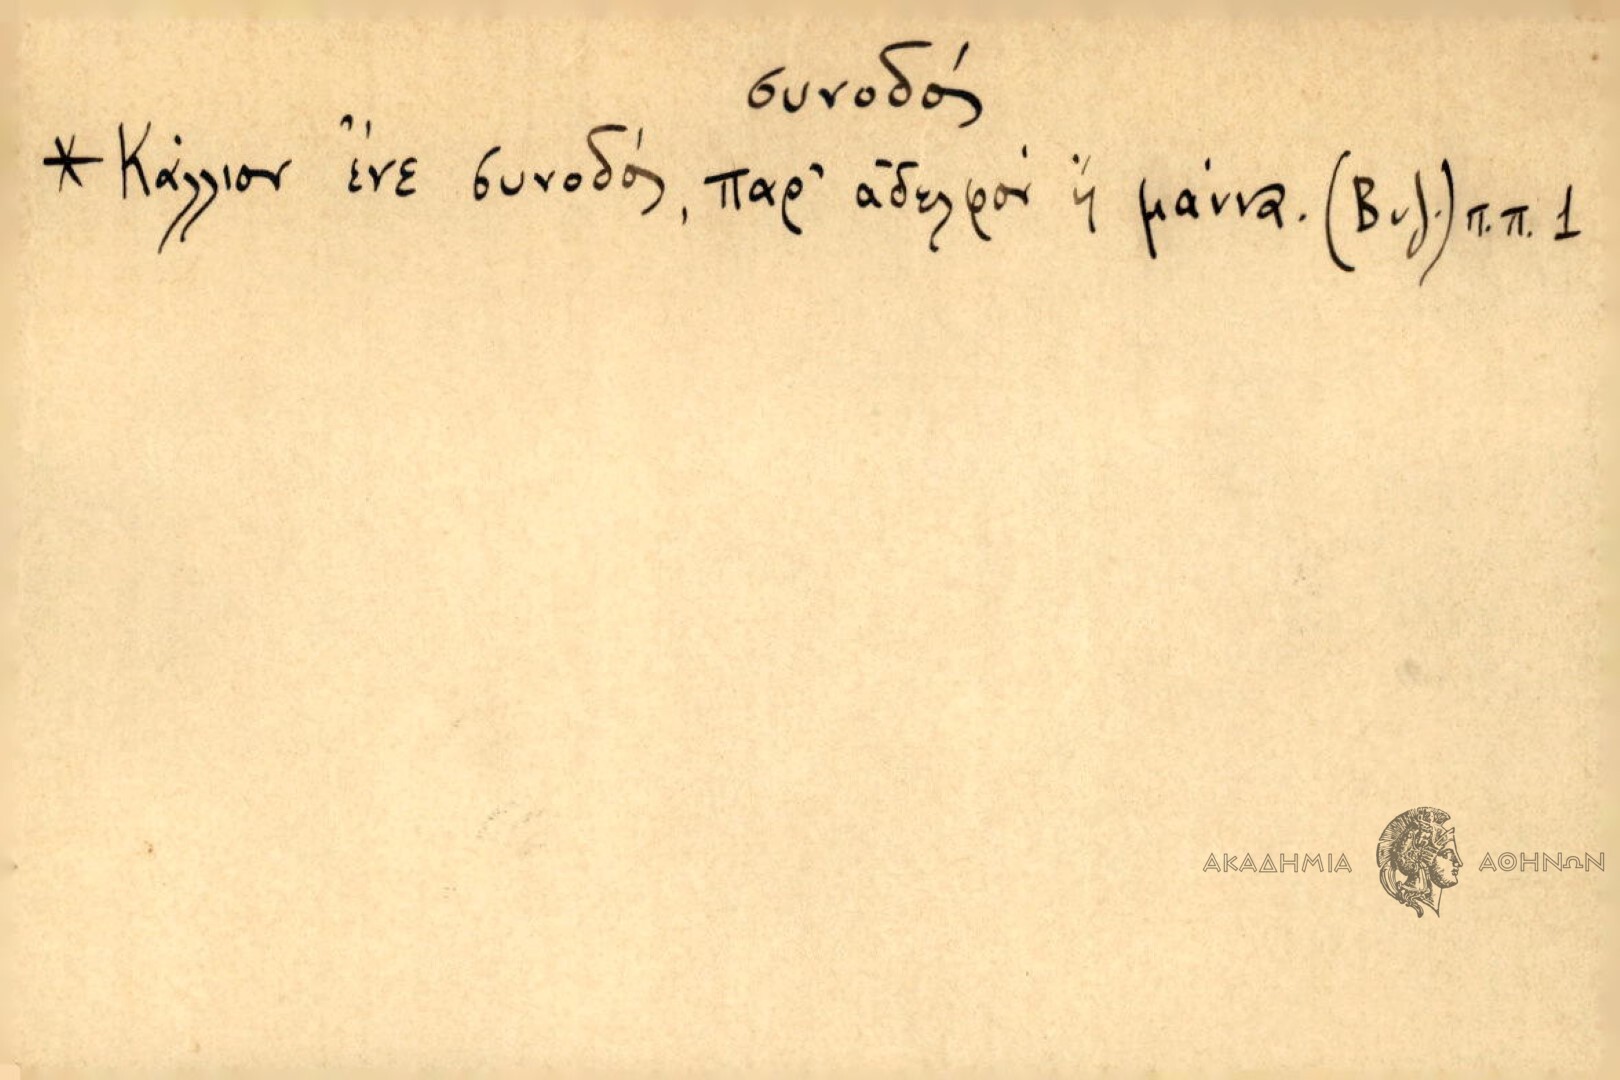 συνοδός
* Κάλλιον ἔνε συνοδός, παρ' ἀδελφὸν ἢ μάννα. (Βυζ.) π.π. 1
ΑΚΑΔΗΜΙΑ ΑΘΗΝΩΝ